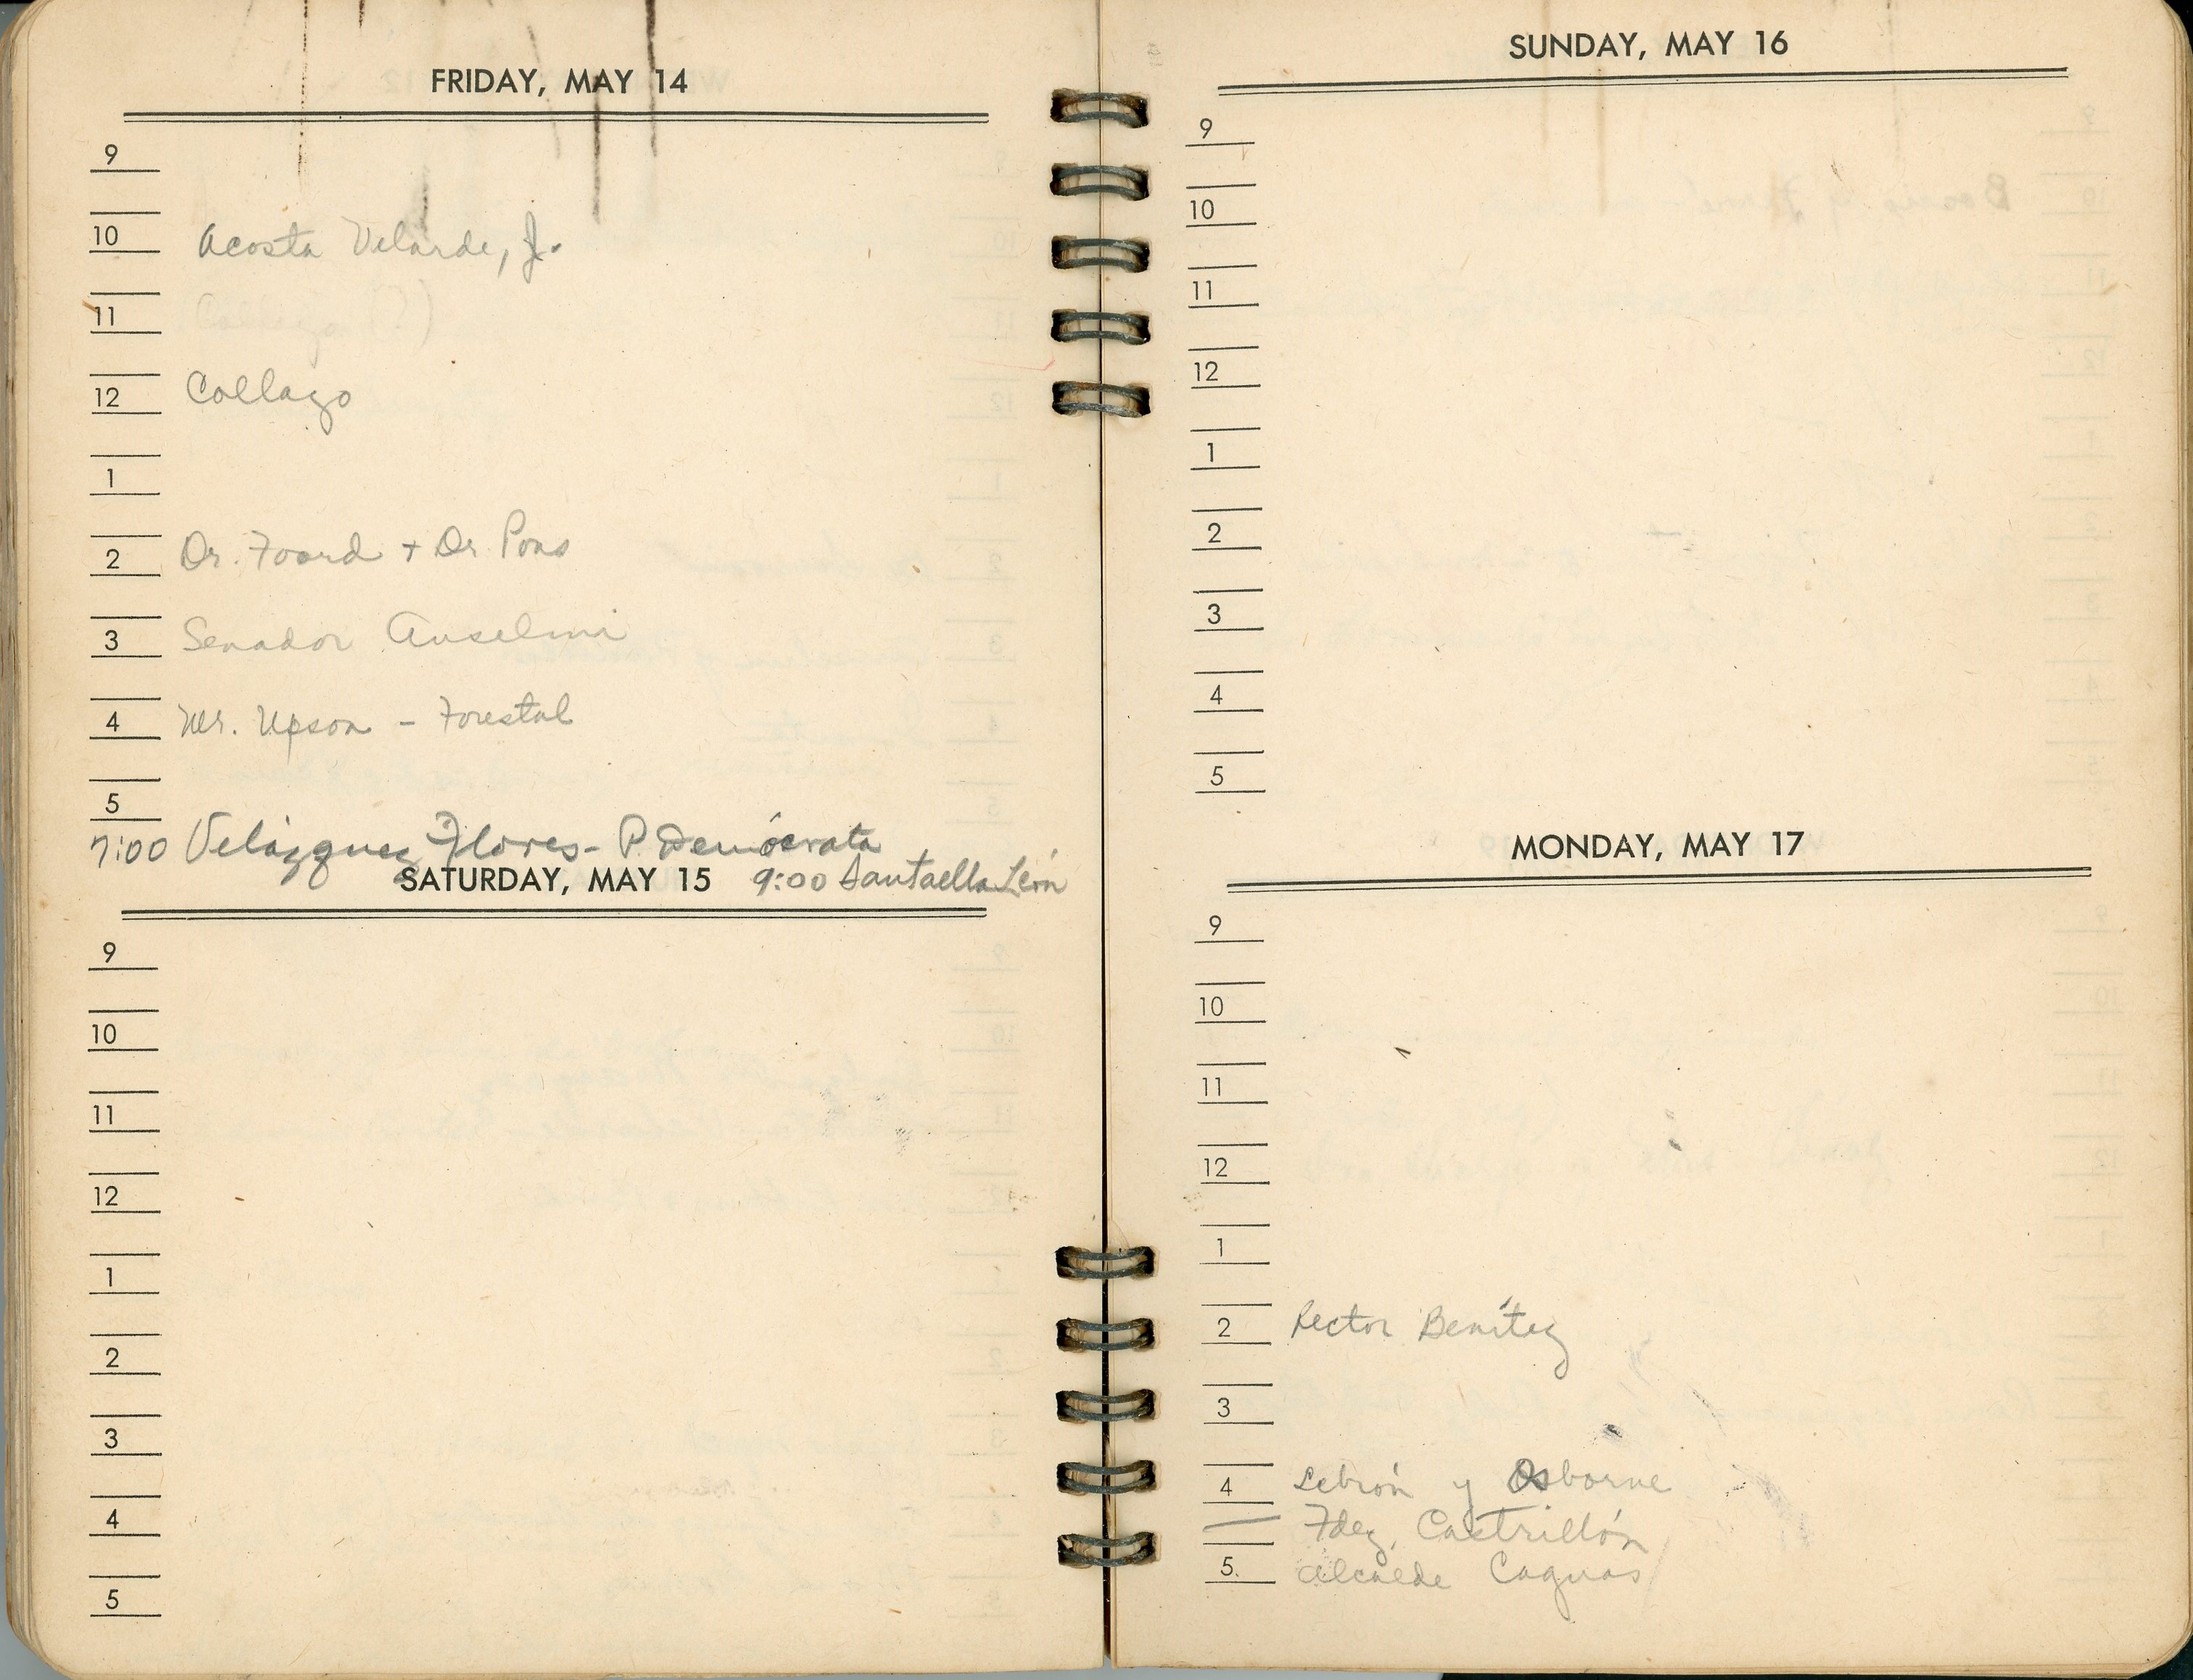 FRIDAY, MAY 14
9
10 Acosta Velarde, J.
11 Collazo (?)
12 Collazo
1
2 Dr. Foard + Dr Pons
3 Senador Anselmi
4 Mr. Upson - Forestal
5
7:00 Velázquez Flores - P. Demócrata
SATURDAY, MAY 15 9:00 Santaella León
9
10
11
12
1
2
3
4
5
SUNDAY, MAY 16
9
10
11
12
1
2
3
4
5
MONDAY, MAY 17
9
10
11
12
1
2 Rector Benítez
3
4 Lebrón y Osborne
Fdez. Castrillón
5 Alcalde Caguas